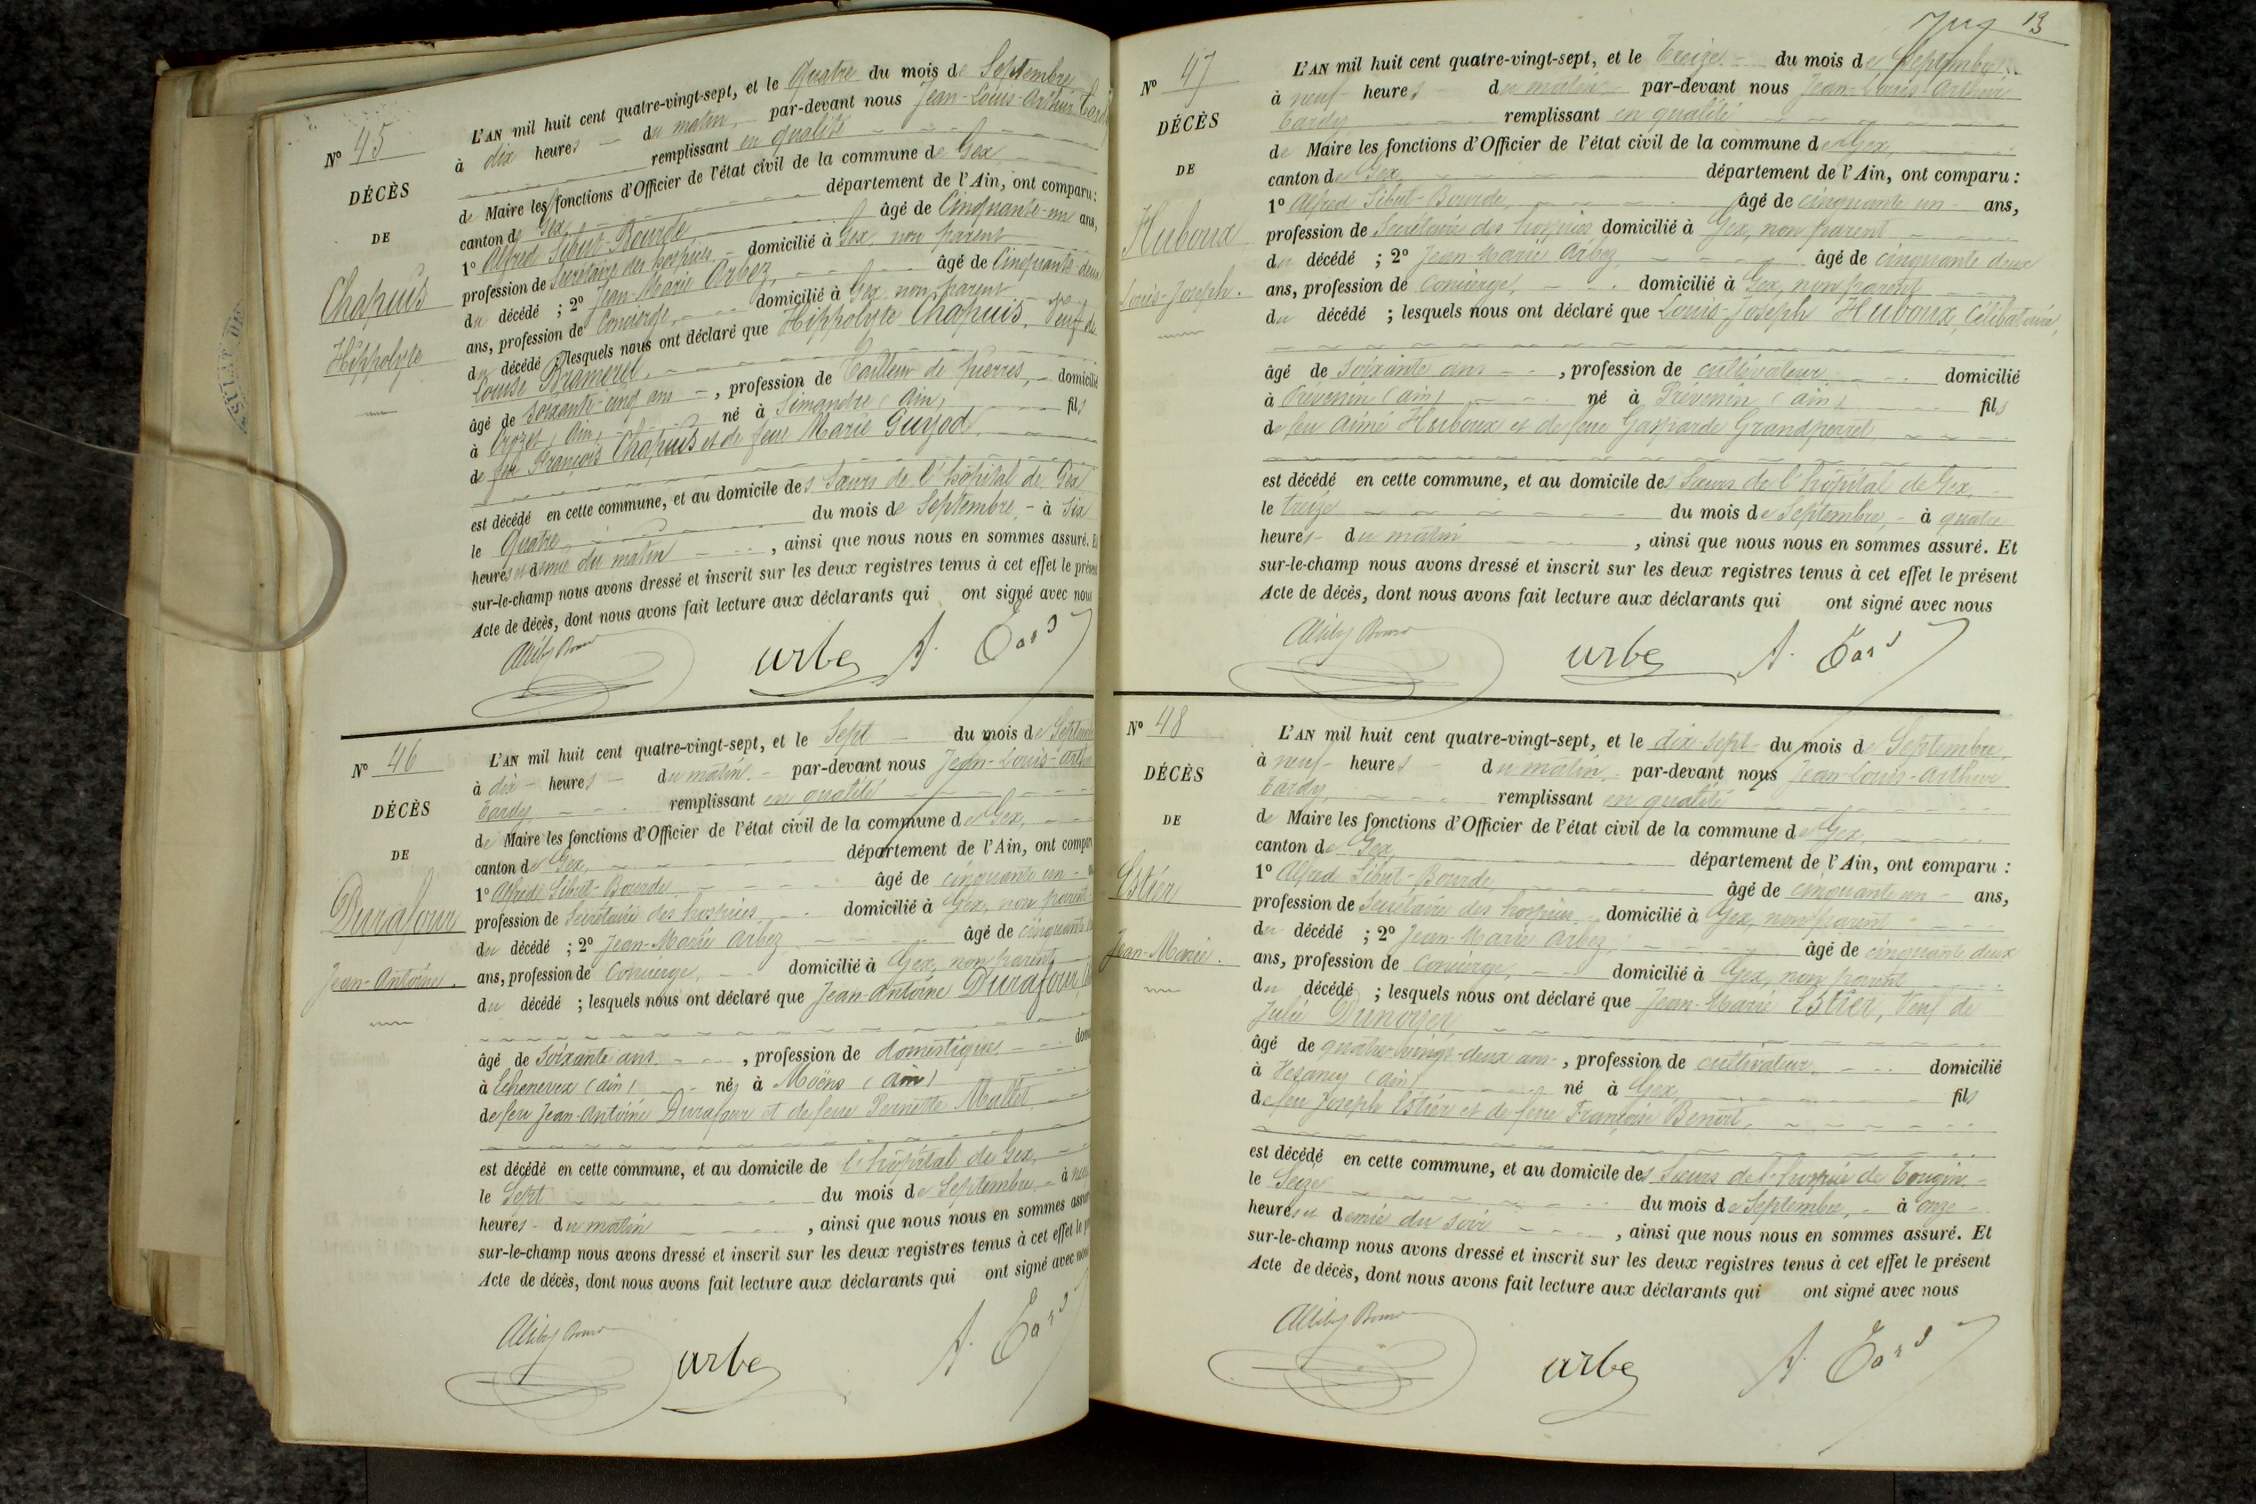 N° 45
DÉCÈS
DE
Chapuis
Hippolyte
L'AN mil huit cent quatre-vingt-sept, et le Quatre du mois de Septembre
à dix heures du matin, par-devant nous Jean-Louis-Arthur Tardy
remplissant en qualité
de Maire les fonctions d'Officier de l'état civil de la commune de Gex
canton de Gex, département de l'Ain, ont comparu :
1° Alfred Sibut-Bourde âgé de Cinquante-un ans,
profession de Secrétaire des hospices domicilié à Gex, non parent
du décédé ; 2° Jean-Marie Arbez, âgé de Cinquante deux
ans, profession de Concierge, domicilié à Gex, non parent
du décédé ; lesquels nous ont déclaré que Hippolyte Chapuis, Veuf de
Louise Bramerel,
âgé de soixante-cinq ans, profession de Tailleur de pierres, domicilié
à Crozet, Ain, né à Simandre (Ain) fils
de feu François Chapuis et de feue Marie Guyod,
est décédé en cette commune, et au domicile des Sœurs de l'hôpital de Gex
le Quatre du mois de Septembre, à Six
heures et demie du matin, ainsi que nous nous en sommes assuré. Et
sur-le-champ nous avons dressé et inscrit sur les deux registres tenus à cet effet le présent
Acte de décès, dont nous avons fait lecture aux déclarants qui ont signé avec nous
Arbez A. Tardy
N° 46
DÉCÈS
DE
Durafour
Jean-Antoine.
L'AN mil huit cent quatre-vingt-sept, et le Sept du mois de Septembre
à dix heures du matin, par-devant nous Jean-Louis-Arthur
Tardy, remplissant en qualité
de Maire les fonctions d'Officier de l'état civil de la commune de Gex,
canton de Gex, département de l'Ain, ont comparu
1° Alfred Sibut-Bourde âgé de cinquante un
profession de Secrétaire des hospices domicilié à Gex, non parent
du décédé ; 2° Jean-Marie Arbez âgé de cinquante
ans, profession de Concierge, domicilié à Gex, non parent
du décédé ; lesquels nous ont déclaré que Jean-Antoine Durafour,
âgé de soixante ans, profession de domestique
à Echenevex (Ain) né à Moëns (Ain)
de feu Jean-Antoine Durafour et de feue Pernette Mallet
est décédé en cette commune, et au domicile de l'hôpital de Gex,
le Sept du mois de Septembre, à
heures du matin, ainsi que nous nous en sommes assuré
sur-le-champ nous avons dressé et inscrit sur les deux registres tenus à cet effet le
Acte de décès, dont nous avons fait lecture aux déclarants qui ont signé avec nous
Arbez A. Tardy
13
N° 47
DÉCÈS
DE
Huboux
Louis-Joseph.
L'AN mil huit cent quatre-vingt-sept, et le Treize du mois de Septembre
à neuf heures du matin par-devant nous Jean-Louis-Arthur
Tardy remplissant en qualité
de Maire les fonctions d'Officier de l'état civil de la commune de Gex,
canton de Gex, département de l'Ain, ont comparu :
1° Alfred Sibut-Bourde, âgé de cinquante un ans,
profession de Secrétaire des hospices domicilié à Gex, non parent
du décédé ; 2° Jean-Marie Arbez âgé de cinquante deux
ans, profession de Concierge, domicilié à Gex, non parent
du décédé ; lesquels nous ont déclaré que Louis-Joseph Huboux, Célibataire,
âgé de soixante ans, profession de cultivateur domicilié
à Prévenin (Ain) né à Prévenin (Ain) fils
de feu Aimé Huboux et de feue Gasparde Grandperret
est décédé en cette commune, et au domicile des Sœurs de l'hôpital de Gex,
le treize du mois de Septembre, à quatre
heures du matin, ainsi que nous nous en sommes assuré. Et
sur-le-champ nous avons dressé et inscrit sur les deux registres tenus à cet effet le présent
Acte de décès, dont nous avons fait lecture aux déclarants qui ont signé avec nous
Arbez A. Tardy
N° 48
DÉCÈS
DE
Estier
Jean-Marie.
L'AN mil huit cent quatre-vingt-sept, et le dix sept du mois de Septembre
à neuf heures du matin, par-devant nous Jean-Louis-Arthur
Tardy, remplissant en qualité
de Maire les fonctions d'Officier de l'état civil de la commune de Gex,
canton de Gex département de l'Ain, ont comparu :
1° Alfred Sibut-Bourde âgé de cinquante un ans,
profession de Secrétaire des hospices domicilié à Gex, non parent
du décédé ; 2° Jean-Marie Arbez, âgé de cinquante deux
ans, profession de Concierge, domicilié à Gex, non parent
du décédé ; lesquels nous ont déclaré que Jean-Marie Estier, Veuf de
Julie Dunoyer,
âgé de quatre-vingt-deux ans, profession de cultivateur domicilié
à Vesancy (Ain) né à Gex, fils
de feu Joseph Estier et de feue Françoise Benoit,
est décédé en cette commune, et au domicile des Sœurs de l'hospice de Tougin
le Seize du mois de Septembre, à onze
heures et demie du soir, ainsi que nous nous en sommes assuré. Et
sur-le-champ nous avons dressé et inscrit sur les deux registres tenus à cet effet le présent
Acte de décès, dont nous avons fait lecture aux déclarants qui ont signé avec nous
Arbez A. Tardy